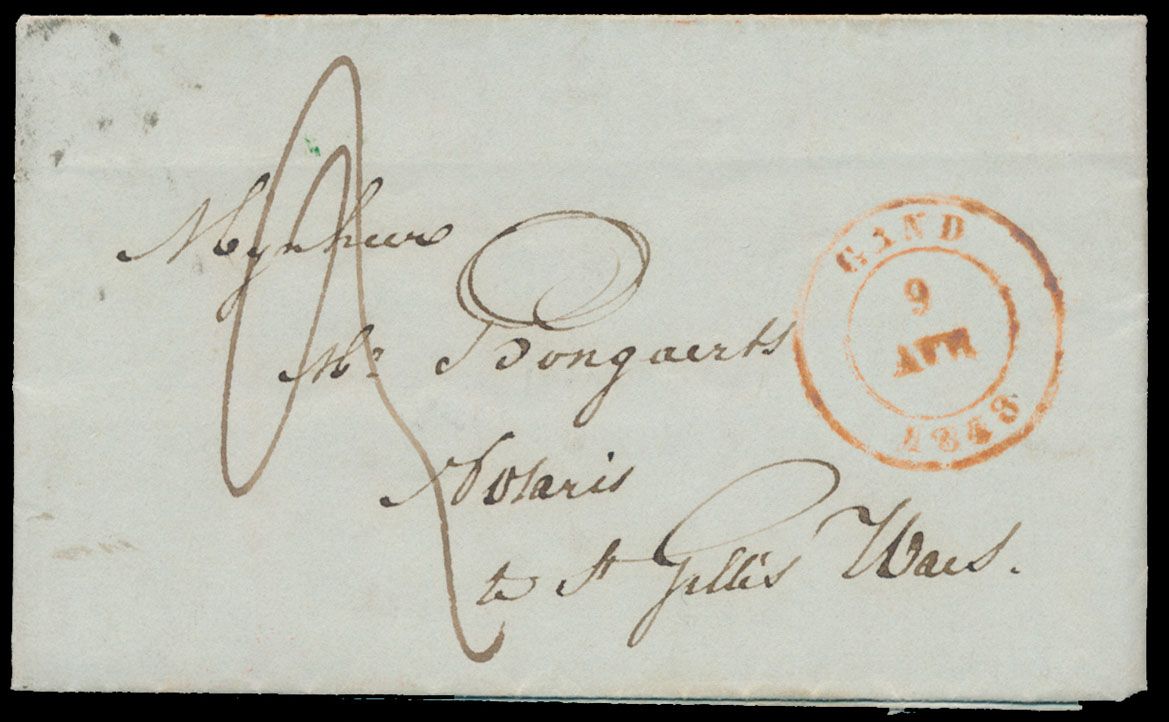 Mynheer
Mr Bongaerts
Notaris
te St Gillis Waes.
GAND
9
APR
1848